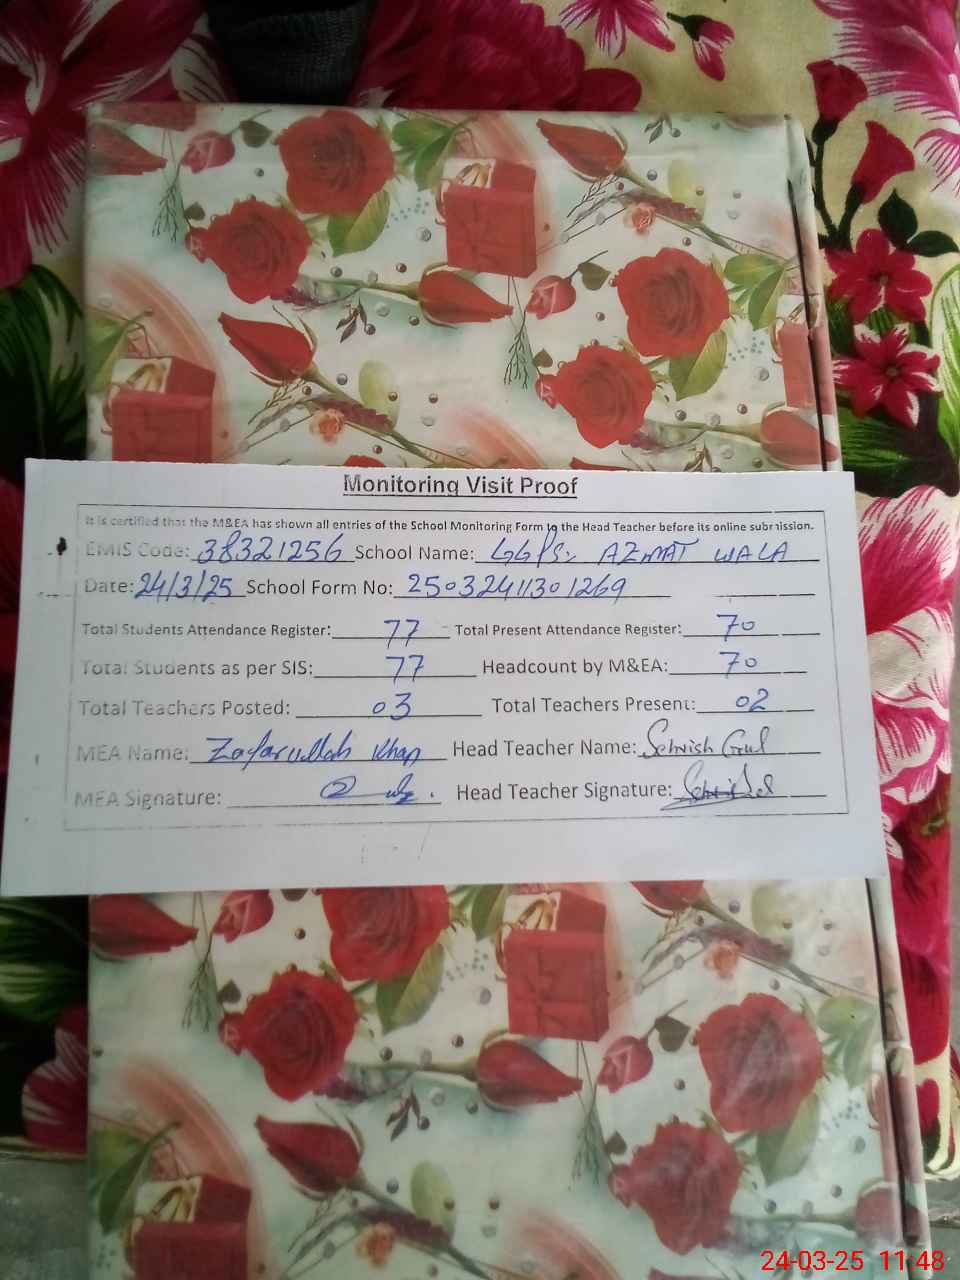 Monitoring Visit Proof
It is certified that the M&EA has shown all entries of the School Monitoring Form to the Head Teacher before its online submission.
EMIS Code: 38321256 School Name: GGPS: AZMAT WALA
Date: 24/3/25 School Form No: 25032411301269
Total Students Attendance Register: 77 Total Present Attendance Register: 70
Total Students as per SIS: 77 Headcount by M&EA: 70
Total Teachers Posted: 03 Total Teachers Present: 02
MEA Name: Zafarullah Khan Head Teacher Name: Sehrish Gul
MEA Signature: Head Teacher Signature:
24-03-25 11:48